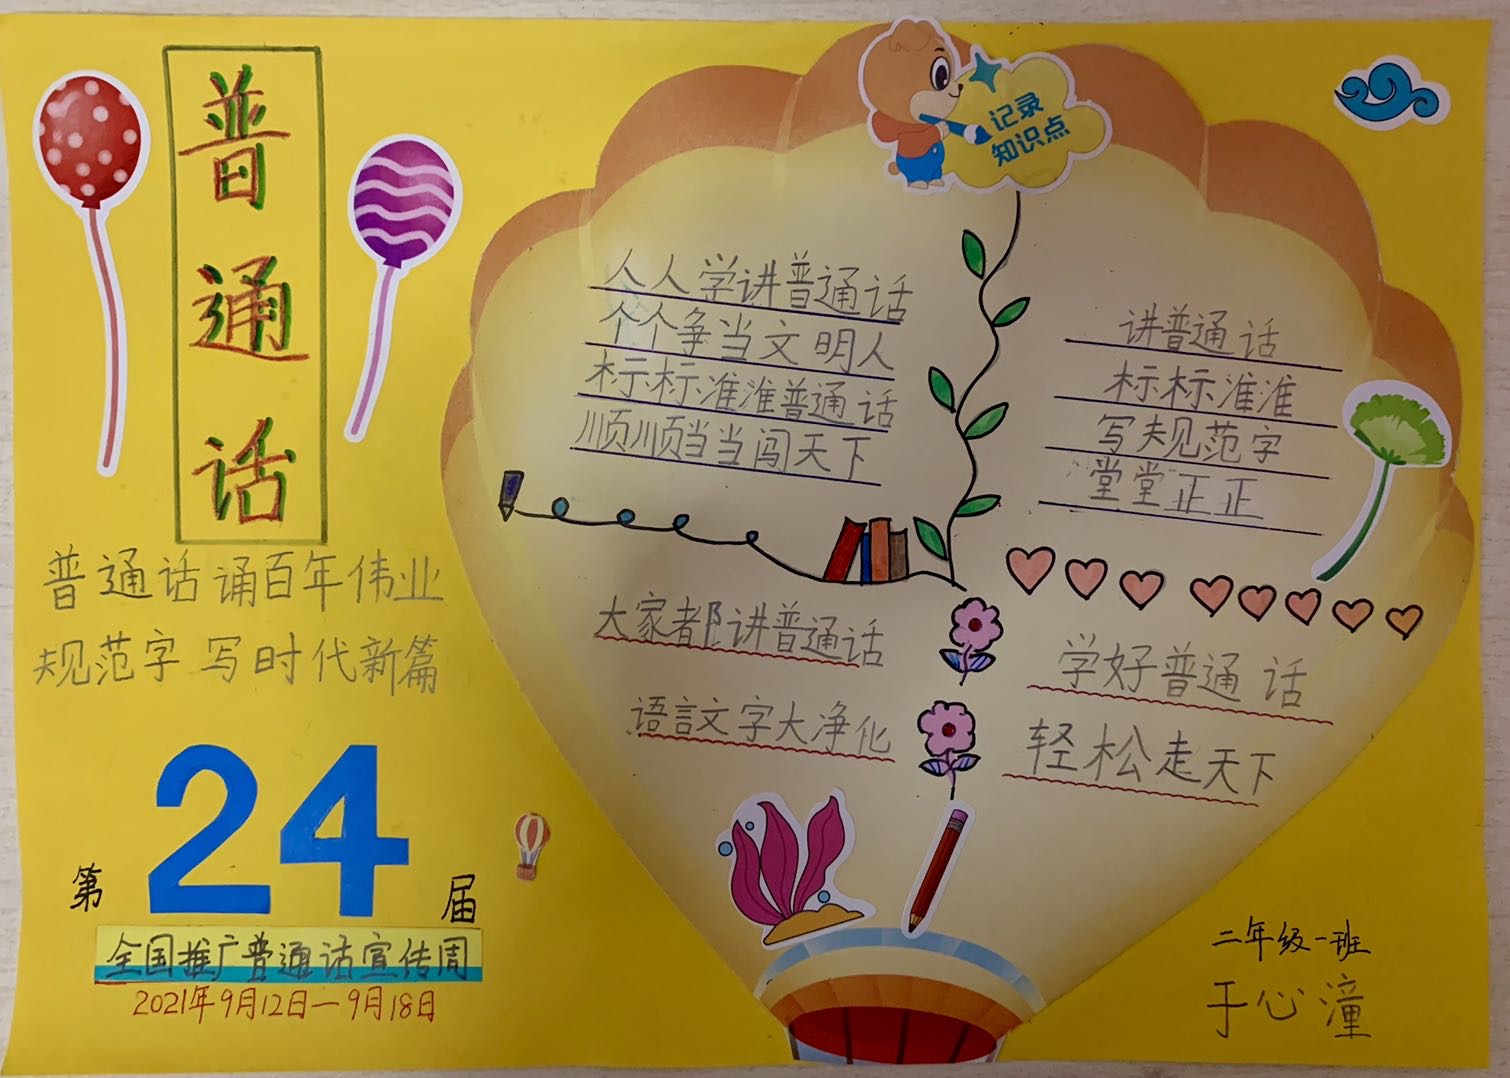 普通话
普通话诵百年伟业
规范字写时代新篇
第24届
全国推广普通话宣传周
2021年9月12日—9月18日
记录
知识点
人人学讲普通话
个个争当文明人
标标准准普通话
顺顺当当闯天下
讲普通话
标标准准
写规范字
堂堂正正
大家都讲普通话
语言文字大净化
学好普通话
轻松走天下
二年级一班
于心潼